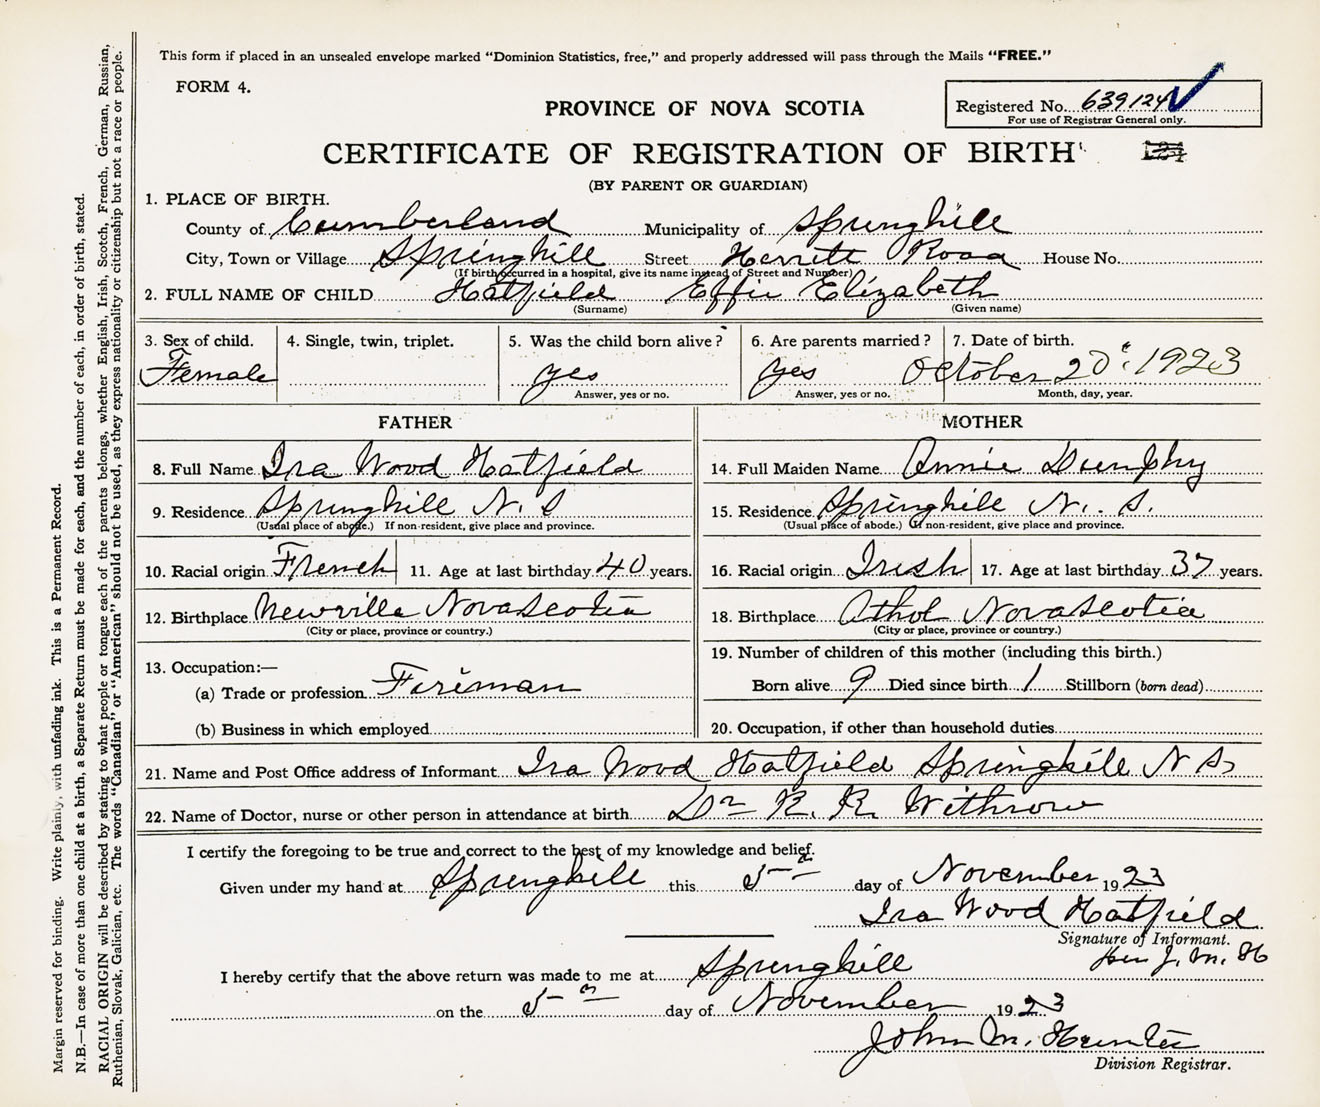 This form if placed in an unsealed envelope marked “Dominion Statistics, free,” and properly addressed will pass through the Mails “FREE.”
FORM 4.
PROVINCE OF NOVA SCOTIA
Registered No. 639124
For use of Registrar General only.
CERTIFICATE OF REGISTRATION OF BIRTH
(BY PARENT OR GUARDIAN)
1. PLACE OF BIRTH.
County of Cumberland Municipality of Springhill
City, Town or Village Springhill Street Herrett Road House No.
(If birth occurred in a hospital, give its name instead of Street and Number)
2. FULL NAME OF CHILD Hatfield Effie Elizabeth
(Surname) (Given name)
3. Sex of child. 4. Single, twin, triplet. 5. Was the child born alive? 6. Are parents married? 7. Date of birth.
Female yes yes October 20 1923
Answer, yes or no. Answer, yes or no. Month, day, year.
FATHER MOTHER
8. Full Name Ira Wood Hatfield 14. Full Maiden Name Annie Dunphy
9. Residence Springhill N. S 15. Residence Springhill N. S.
(Usual place of abode.) If non-resident, give place and province. (Usual place of abode.) If non-resident, give place and province.
10. Racial origin French 11. Age at last birthday 40 years. 16. Racial origin Irish 17. Age at last birthday 37 years.
12. Birthplace Newville Nova Scotia 18. Birthplace Athol Nova Scotia
(City or place, province or country.) (City or place, province or country.)
13. Occupation:— 19. Number of children of this mother (including this birth.)
(a) Trade or profession Fireman Born alive 9 Died since birth 1 Stillborn (born dead)
(b) Business in which employed 20. Occupation, if other than household duties
21. Name and Post Office address of Informant Ira Wood Hatfield Springhill N S
22. Name of Doctor, nurse or other person in attendance at birth Dr R. R. Withrow
I certify the foregoing to be true and correct to the best of my knowledge and belief.
Given under my hand at Springhill this 5 day of November 1923
Ira Wood Hatfield
Signature of Informant.
J. M. H
I hereby certify that the above return was made to me at Springhill
on the 5 day of November 1923
John M. Hunter
Division Registrar.
Margin reserved for binding. Write plainly, with unfading ink. This is a Permanent Record.
N.B.—In case of more than one child at a birth, a Separate Return must be made for each, and the number of each, in order of birth, stated.
RACIAL ORIGIN will be described by stating to what people or tongue each of the parents belongs, whether English, Irish, Scotch, French, German, Russian,
Ruthenian, Slovak, Galician, etc. The words “Canadian” or “American” should not be used, as they express nationality or citizenship but not a race or people.